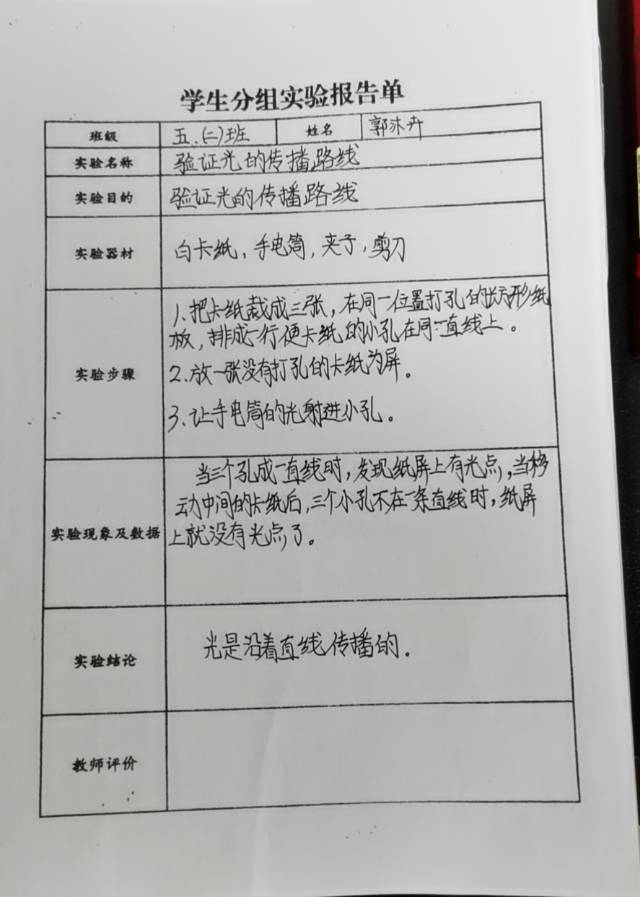 学生分组实验报告单
班级 五.(二)班 姓名 郭沐卉
实验名称 验证光的传播路线
实验目的 验证光的传播路线
实验器材 白卡纸，手电筒，夹子，剪刀
实验步骤
1.把卡纸裁成三张，在同一位置打孔的长方形纸
板，排成一行使卡纸的小孔在同一直线上。
2.放一张没有打孔的卡纸为屏。
3.让手电筒的光射进小孔。
实验现象及数据
当三个孔成一直线时，发现纸屏上有光点，当移
动中间的卡纸后，三个小孔不在一条直线时，纸屏
上就没有光点了。
实验结论 光是沿着直线传播的。
教师评价